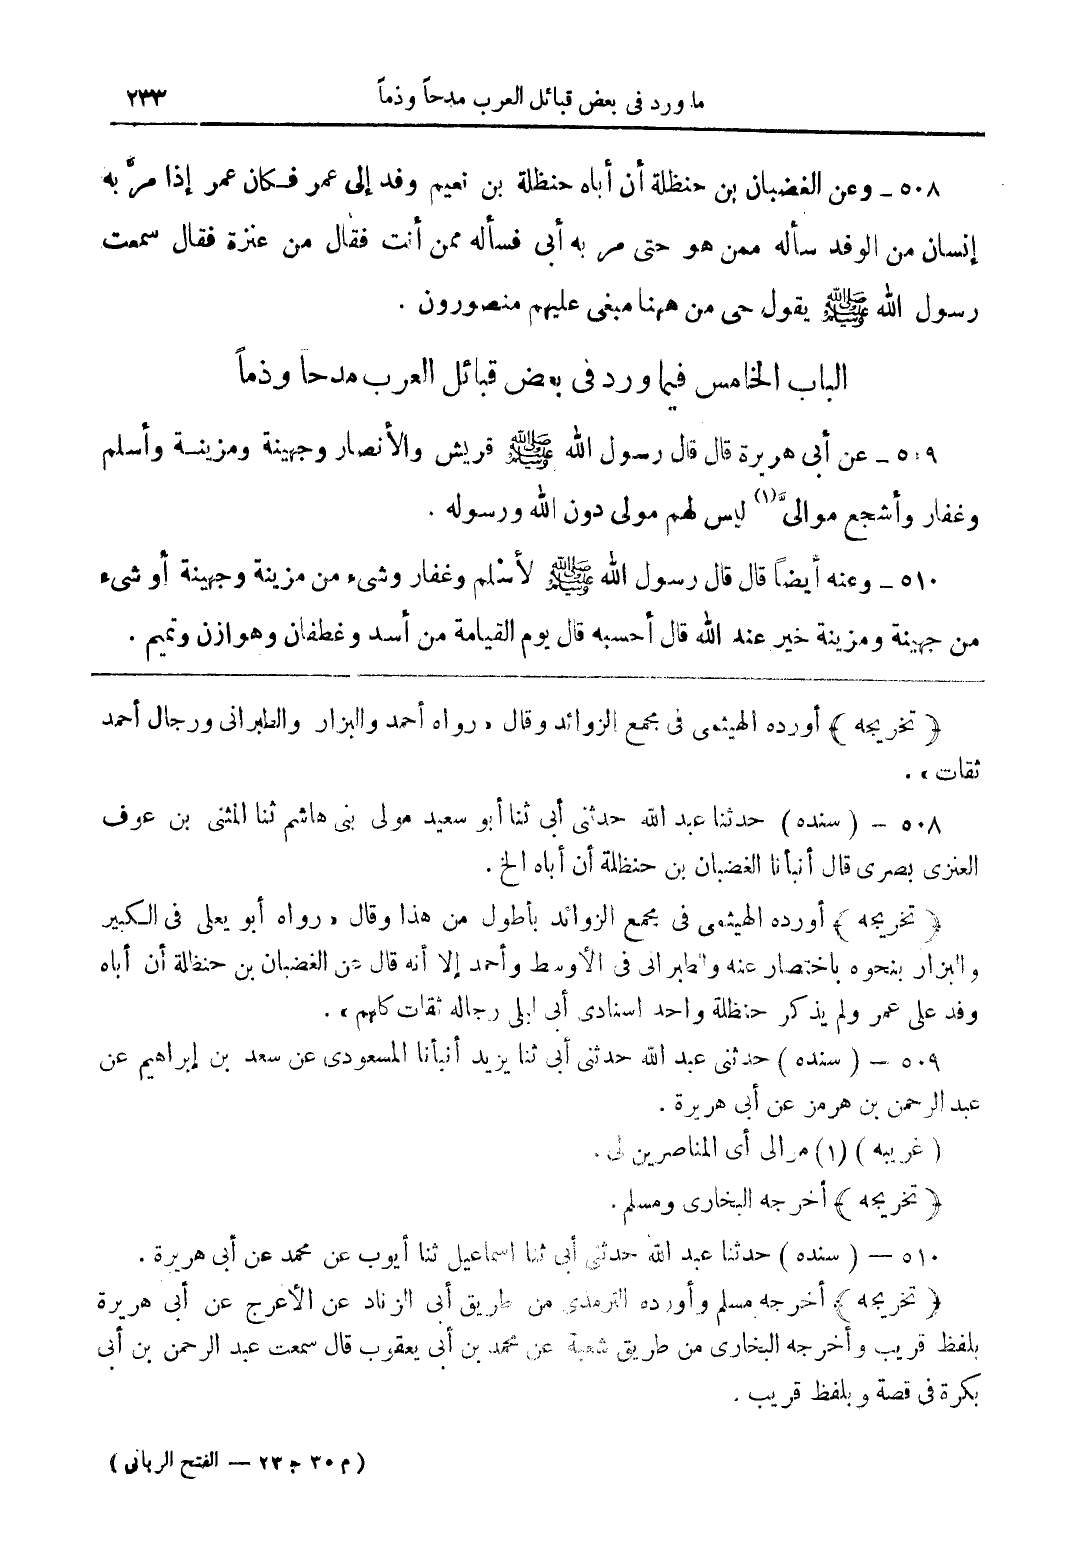 ما ورد فى بعض قبائل العرب مدحاً وذماً ٢٣٣
٥٠٨ ـ وعن الغضبان بن حنظلة أن أباه حنظلة بن نعيم وفد إلى عمر فكان عمر إذا مرَّ به
إنسان من الوفد سأله ممن هو حتى مر به أبى فسأله ممن أنت فقال من عنزة فقال سمعت
رسول الله ﷺ يقول حى من ههنا مبغى عليهم منصورون .
الباب الخامس فيما ورد فى بعض قبائل العرب مدحاً وذماً
٥٠٩ ـ عن أبى هريرة قال قال رسول الله ﷺ قريش والأنصار وجهينة ومزينة وأسلم
وغفار وأشجع موالىَّ (١) ليس لهم مولى دون الله ورسوله .
٥١٠ ـ وعنه أيضاً قال قال رسول الله ﷺ لأسْلم وغفار وشىء من مزينة وجهينة أو شىء
من جهينة ومزينة خير عند الله قال أحسبه قال يوم القيامة من أسد وغطفان وهوازن وتميم .
﴿ تخريجه ﴾ أورده الهيثمى فى مجمع الزوائد وقال « رواه أحمد والبزار والطبرانى ورجال أحمد
ثقات » .
٥٠٨ – ( سنده ) حدثنا عبد الله حدثنى أبى ثنا أبو سعيد مولى بنى هاشم ثنا المثنى بن عوف
العنزى بصرى قال أنبأنا الغضبان بن حنظلة أن أباه الخ .
﴿ تخريجه ﴾ أورده الهيثمى فى مجمع الزوائد بأطول من هذا وقال « رواه أبو يعلى فى الكبير
والبزار بنحوه باختصار عنه والطبرانى فى الأوسط وأحمد إلا أنه قال عن الغضبان بن حنظلة أن أباه
وفد على عمر ولم يذكر حنظلة وأحد اسنادى أبى يعلى رجاله ثقات كلهم » .
٥٠٩ – ( سنده ) حدثنى عبد الله حدثنى أبى ثنا يزيد أنبأنا المسعودى عن سعد بن إبراهيم عن
عبد الرحمن بن هرمز عن أبى هريرة .
( غريبه ) (١) موالى أى المناصرين لى .
﴿ تخريجه ﴾ أخرجه البخارى ومسلم .
٥١٠ — ( سنده ) حدثنا عبد الله حدثنى أبى ثنا اسماعيل ثنا أيوب عن محمد عن أبى هريرة .
﴿ تخريجه ﴾ أخرجه مسلم وأورده الترمذى من طريق أبى الزناد عن الأعرج عن أبى هريرة
بلفظ قريب وأخرجه البخارى من طريق شعبة عن محمد بن أبى يعقوب قال سمعت عبد الرحمن بن أبى
بكرة فى قصة وبلفظ قريب .
( م ٣٠ ج ٢٣ — الفتح الربانى )